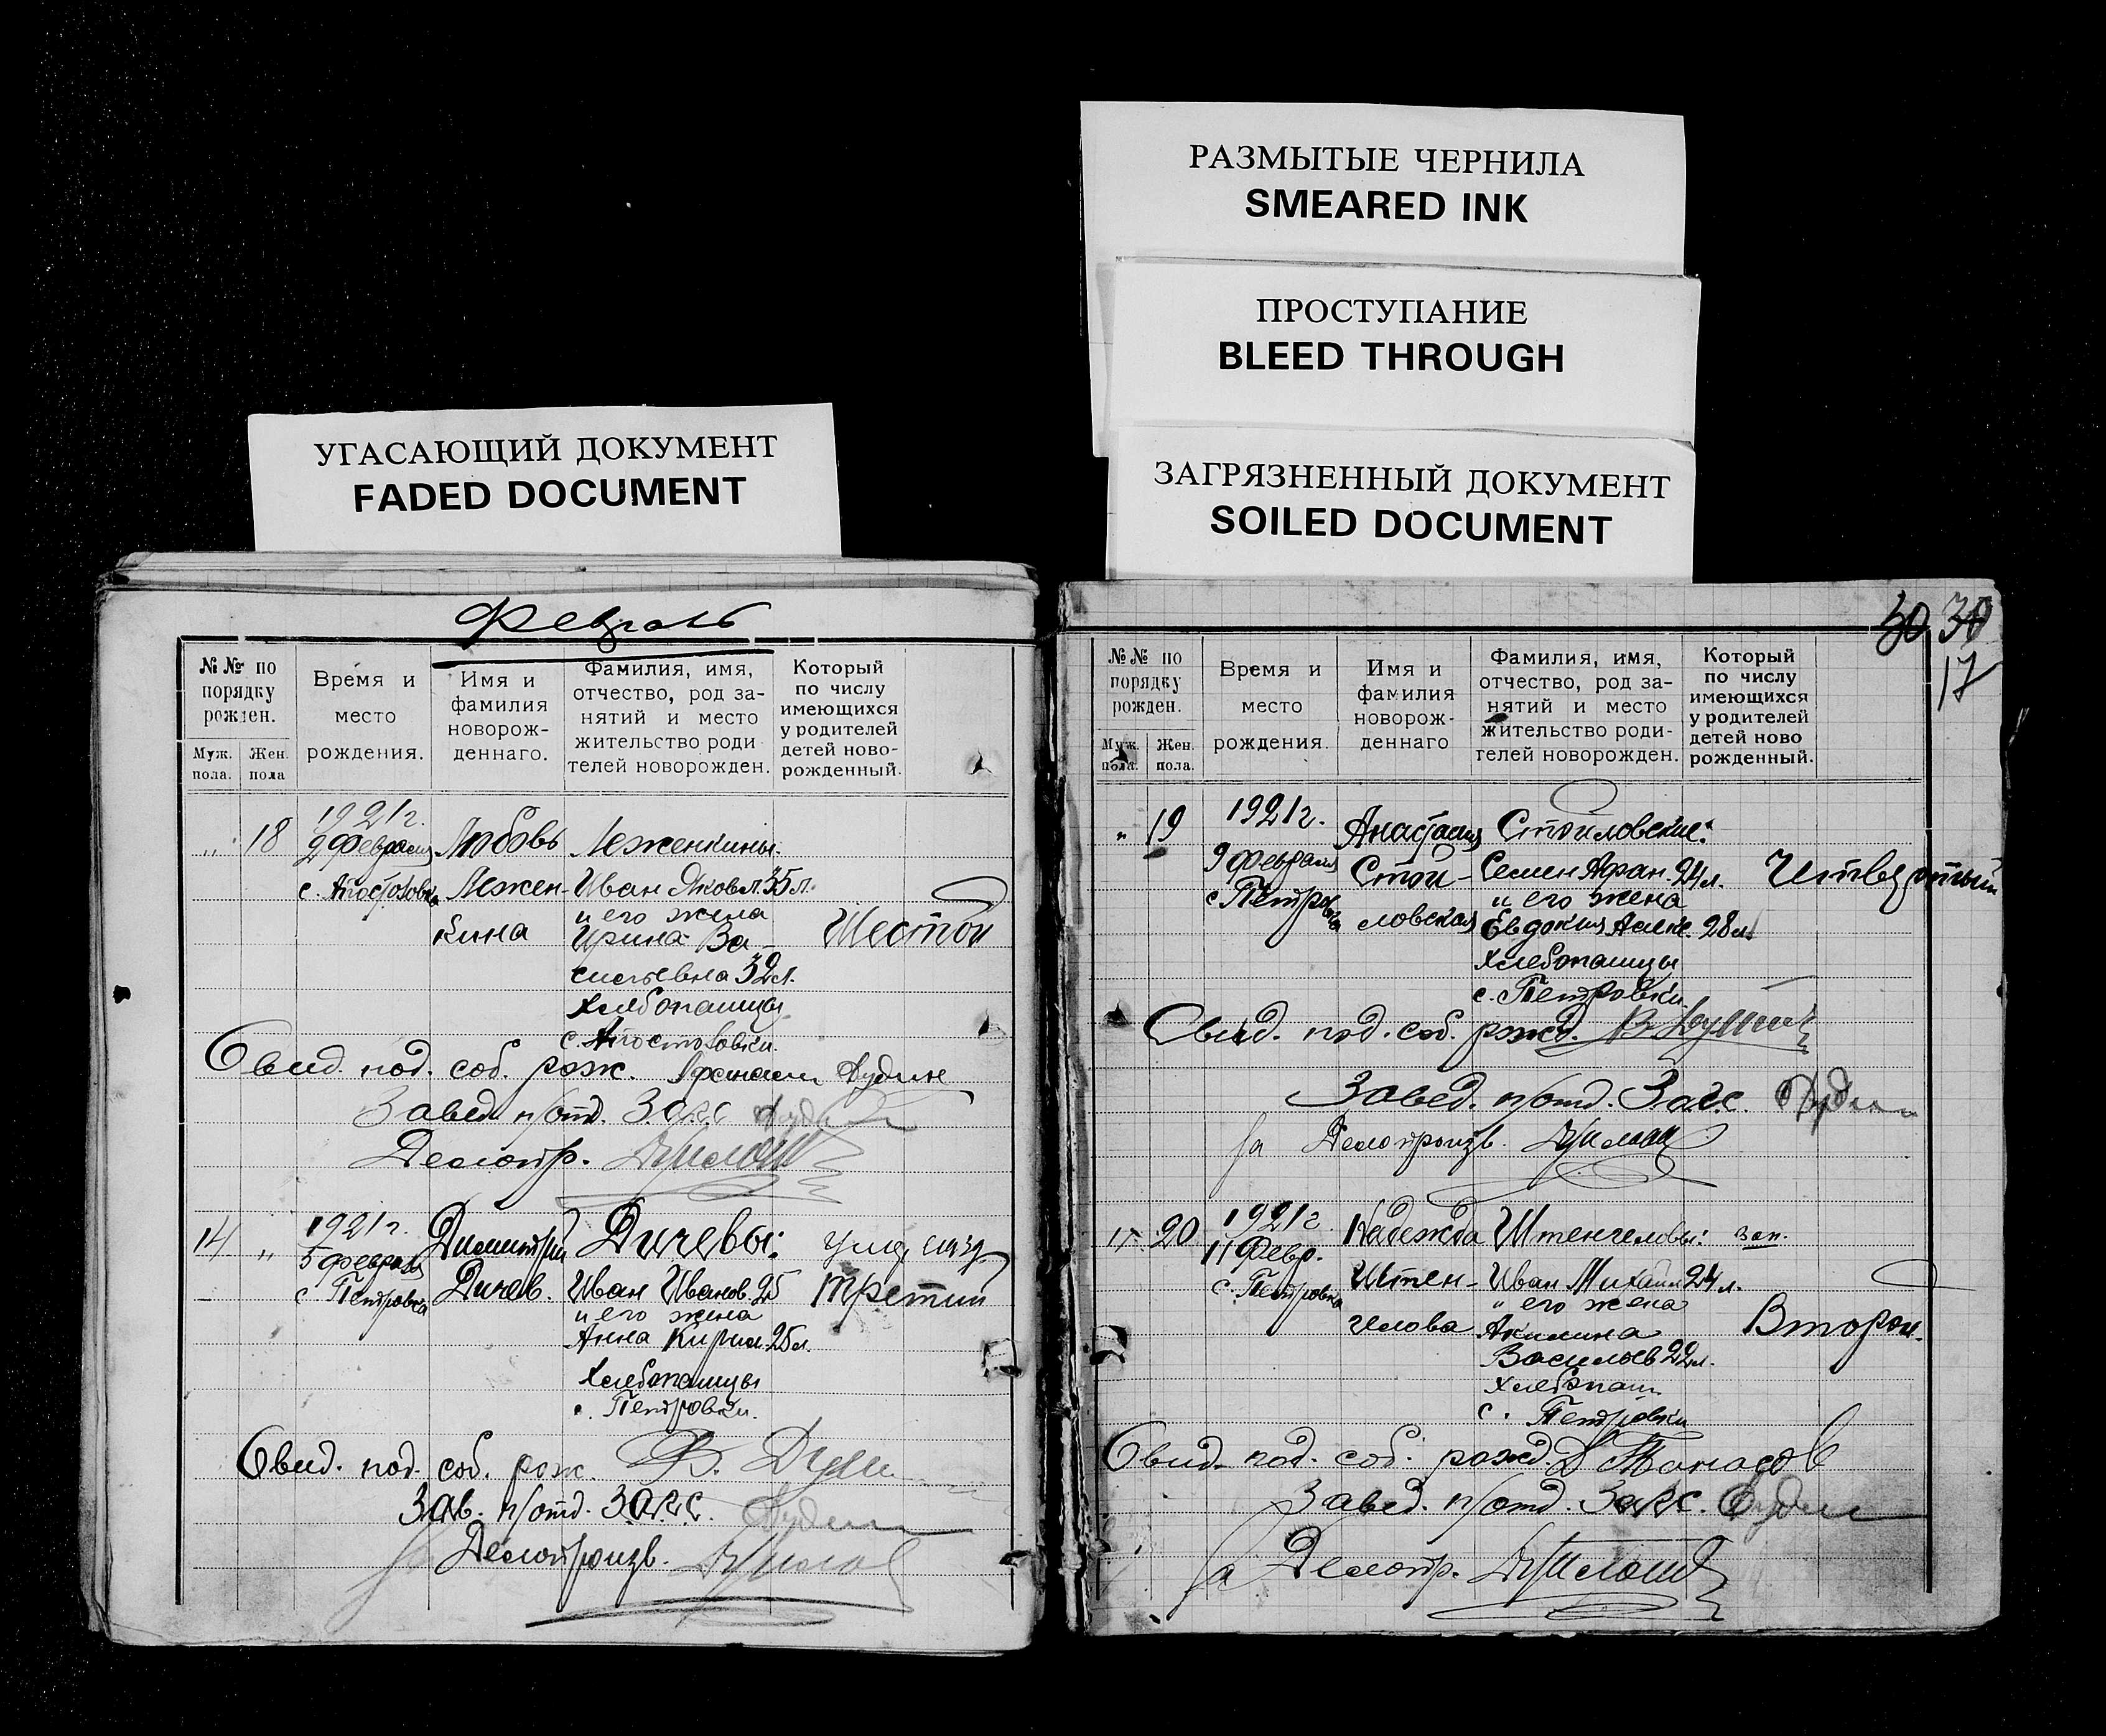 РАЗМЫТЫЕ ЧЕРНИЛА
SMEARED INK
ПРОСТУПАНИЕ
BLEED THROUGH
ЗАГРЯЗНЕННЫЙ ДОКУМЕНТ
SOILED DOCUMENT
УГАСАЮЩИЙ ДОКУМЕНТ
FADED DOCUMENT
Февраль
№№ по порядку рожден.
Муж. пола.
Жен. пола
Время и место рождения.
Имя и фамилия новорож-деннаго.
Фамилия, имя, отчество, род за-нятий и место жительство роди телей новорожден.
Который по числу имеющихся у родителей детей ново-рожденный.
18
1921 г.
2 февраля
Любовь
Леженкины
Лежен-
кина
Иван Яковл. 35 л.
и его жена
Ирина Ва-
сильевна 32 л.
хлебопашцы
Шестой
Свид. под. соб. рож.
Завед. п/отд. ЗАГС
Делопр.
14
1921 г.
5 февраля
с. Петровка
Димитрий
Дичев.
Дичевы:
Иван Иванов. 25
и его жена
Анна Кирил. 25 л.
хлебопашцы
с. Петровки.
Третий
Свид. под. соб. рож.
Зав. п/отд. ЗАГС.
Делопроизв.
30 30
17
№№ по порядку рожден.
Муж. пола.
Жен. пола.
Время и место рождения.
Имя и фамилия новорож-деннаго
Фамилия, имя, отчество, род за-нятий и место жительство роди-телей новорожден.
Который по числу имеющихся у родителей детей ново рожденный.
" 19
1921 г.
9 февраля
с. Петровка
Анастасия
Стои-
ловская
Стоиловские:
Семен Афан. 24 л.
и его жена
Евдокия Алекс. 28 л.
хлебопашцы
с. Петровки.
Четвертый
Свид. под. соб. рожд.
Завед. п/отд. Загс.
за Делопроизв.
" 20
1921 г.
11 Февр.
с. Петровка
Надежда
Штен-
гелова
Штенгеловы:
зап.
Иван Михайл 24 л.
и его жена
Акилина
Васильев 22 л.
хлебопаш.
с. Петровки
Второй.
Свид. под. соб. рожд.
Завед. п/отд. Загс.
за Делопр.